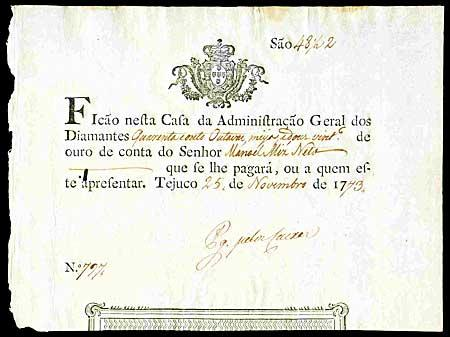 São 48/2 2
Ficão nesta Casa da Administração Geral dos
Diamantes Quarenta e oito Outavas, meya e dous vint.s de
ouro de conta do Senhor Manoel Miz Neto
que se lhe pagará, ou a quem es-
te apresentar. Tejuco 25 de Novembro de 1773.
Pg. pelos Caixas
N.º 797